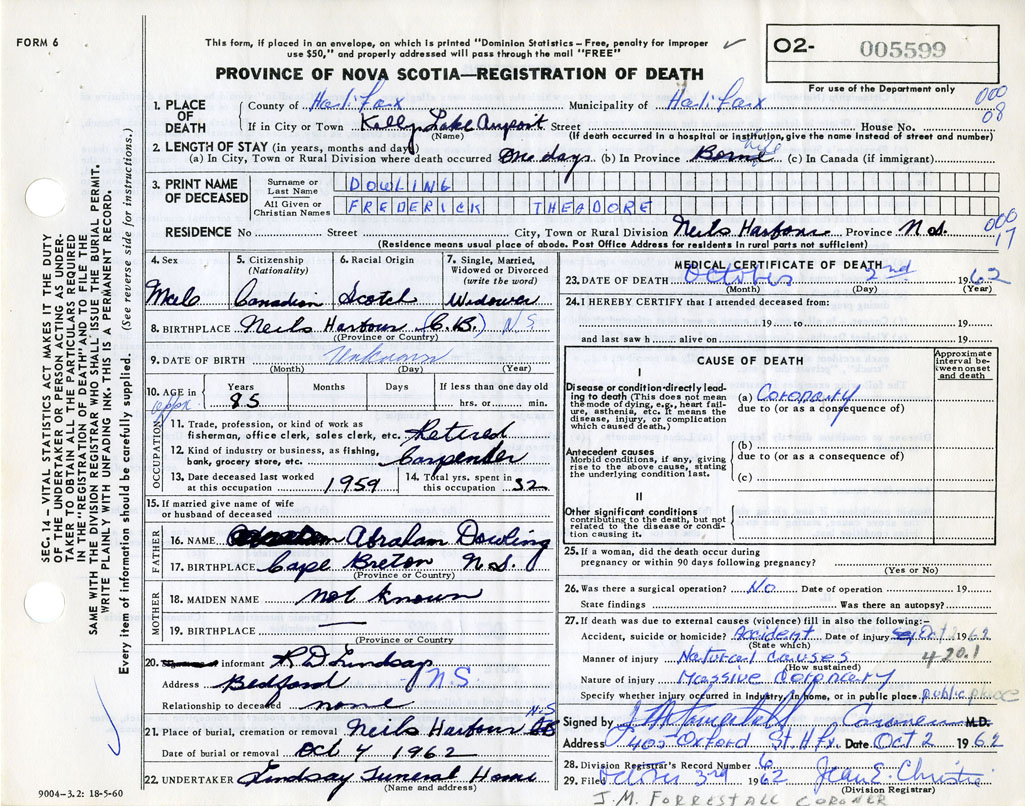 FORM 6
This form, if placed in an envelope, on which is printed "Dominion Statistics – Free, penalty for improper
use $50," and properly addressed will pass through the mail "FREE"
✓
O2- 005599
For use of the Department only
PROVINCE OF NOVA SCOTIA—REGISTRATION OF DEATH
SEC. 14 – VITAL STATISTICS ACT MAKES IT THE DUTY
OF THE UNDERTAKER OR PERSON ACTING AS UNDER-
TAKER TO OBTAIN ALL THE PARTICULARS REQUIRED
IN THE "REGISTRATION OF DEATH" AND TO FILE THE
SAME WITH THE DIVISION REGISTRAR WHO SHALL ISSUE THE BURIAL PERMIT.
WRITE PLAINLY WITH UNFADING INK. THIS IS A PERMANENT RECORD.
Every item of information should be carefully supplied. (See reverse side for instructions.)
1. PLACE OF DEATH
County of Halifax Municipality of Halifax 000 08
If in City or Town Kelly Lake Airport Street House No.
(Name) (If death occurred in a hospital or institution, give the name instead of street and number)
2. LENGTH OF STAY (in years, months and days)
(a) In City, Town or Rural Division where death occurred One days (b) In Province Born (c) In Canada (if immigrant)
3. PRINT NAME OF DECEASED
Surname or Last Name DOWLING
All Given or Christian Names FREDERICK THEADORE
RESIDENCE No Street City, Town or Rural Division Neils Harbour Province N.S. 000 17
(Residence means usual place of abode. Post Office Address for residents in rural parts not sufficient)
4. Sex Male
5. Citizenship (Nationality) Canadian
6. Racial Origin Scotch
7. Single, Married, Widowed or Divorced (write the word) Widower
8. BIRTHPLACE Neils Harbour (C.B.) N S
(Province or Country)
9. DATE OF BIRTH Unknown
(Month) (Day) (Year)
10. AGE in Years Months Days If less than one day old
appx. 85 hrs. or min.
OCCUPATION
11. Trade, profession, or kind of work as
fisherman, office clerk, sales clerk, etc. Retired
12. Kind of industry or business, as fishing,
bank, grocery store, etc. Carpender
13. Date deceased last worked
at this occupation 1959
14. Total yrs. spent in
this occupation 32
15. If married give name of wife
or husband of deceased
FATHER
16. NAME Abraham Dowling
17. BIRTHPLACE Cape Breton N.S.
(Province or Country)
MOTHER
18. MAIDEN NAME not known
19. BIRTHPLACE —
(Province or Country)
20. informant R D Lindsay
Address Bedford N.S.
Relationship to deceased none
21. Place of burial, cremation or removal Neils Harbour N.S
Date of burial or removal Oct 4 1962
22. UNDERTAKER Lindsay Funeral Home
(Name and address)
9004-3.2: 18-5-60
MEDICAL CERTIFICATE OF DEATH
23. DATE OF DEATH October 2nd 1962
(Month) (Day) (Year)
24. I HEREBY CERTIFY that I attended deceased from:
19 to 19
and last saw h alive on 19
CAUSE OF DEATH
Approximate interval between onset and death
I
Disease or condition directly lead-
ing to death (This does not mean
the mode of dying, e.g., heart fail-
ure, asthenia, etc. It means the
disease, injury, or complication
which caused death.)
(a) Coronary
due to (or as a consequence of)
Antecedent causes
Morbid conditions, if any, giving
rise to the above cause, stating
the underlying condition last.
(b)
due to (or as a consequence of)
(c)
II
Other significant conditions
contributing to the death, but not
related to the disease or condi-
tion causing it.
25. If a woman, did the death occur during
pregnancy or within 90 days following pregnancy?
(Yes or No)
26. Was there a surgical operation? No Date of operation 19
State findings Was there an autopsy?
27. If death was due to external causes (violence) fill in also the following:–
Accident, suicide or homicide? Accident Date of injury Oct 2 1962
(State which) 420.1
Manner of injury Natural causes
(How sustained)
Nature of injury Massive Coronary
Specify whether injury occurred in industry, in home, or in public place public place
Signed by Coroner M.D.
Address 405 Oxford St. Hfx. Date Oct 2 1962
28. Division Registrar's Record Number 6
29. Filed October 3rd 1962 Jean E. Christie
(Division Registrar)
J.M. FORRESTALL CORONER